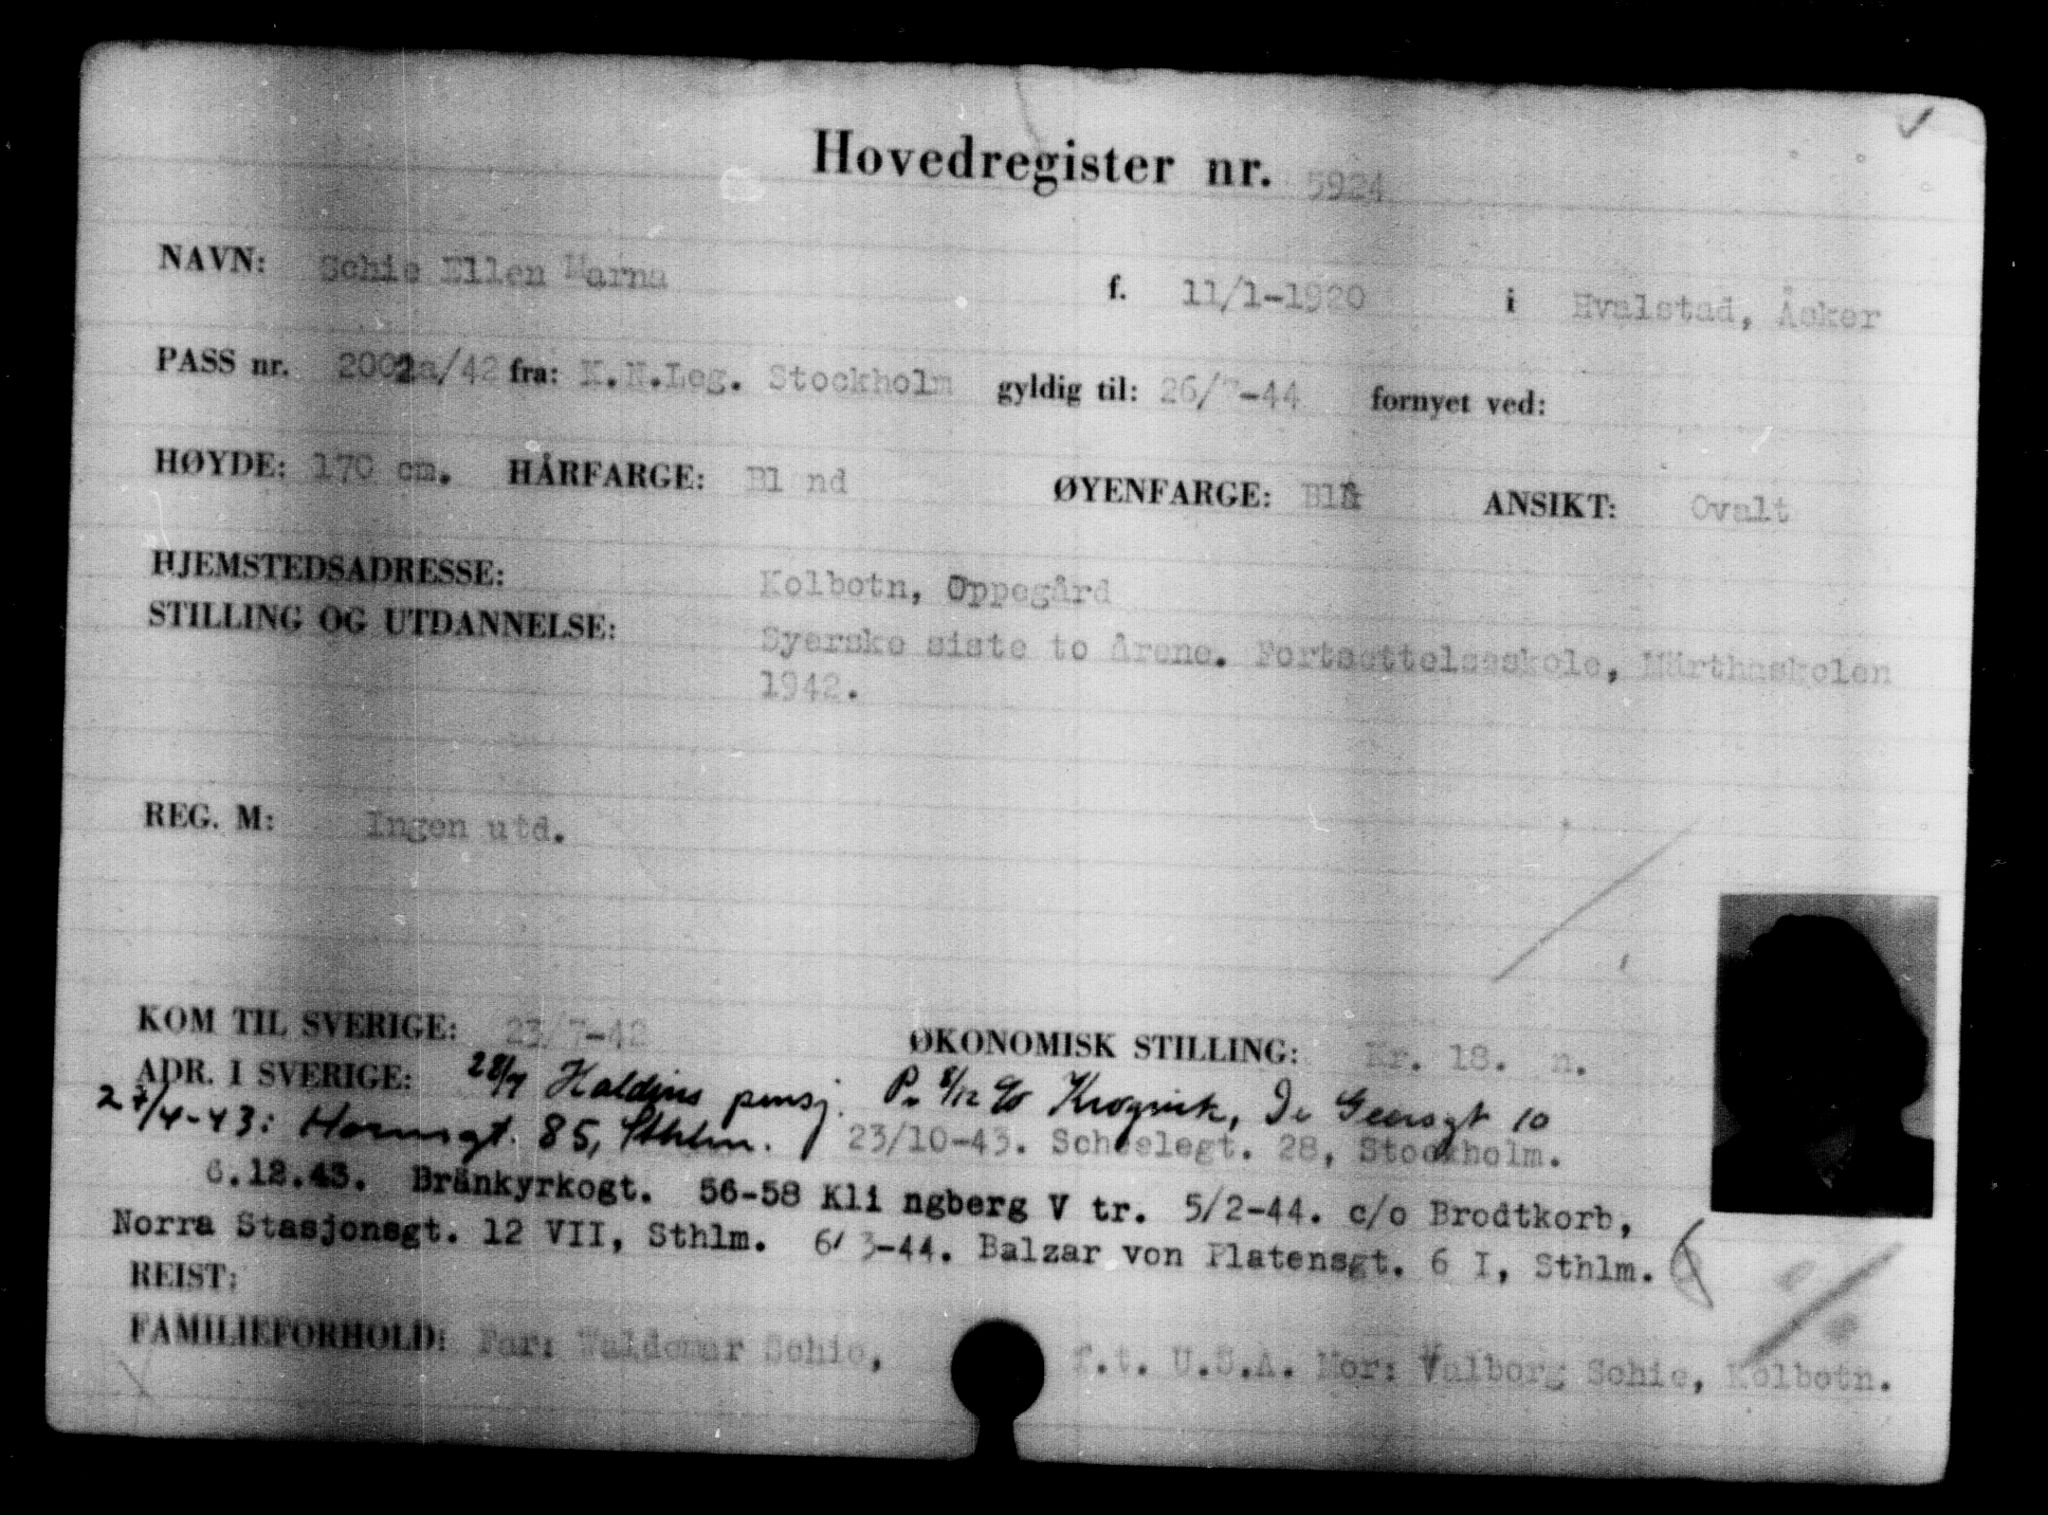 Hovedregister nr. 5924
NAVN: Schie Ellen Marna f. 11/1-1920 i Hvalstad, Asker
PASS nr. 2002a/42 fra: K.N.Leg. Stockholm gyldig til: 26/7-44 fornyet ved:
HØYDE: 170 cm. HÅRFARGE: Bl nd ØYENFARGE: Blå ANSIKT: Ovalt
HJEMSTEDSADRESSE: Kolbotn, Oppegård
STILLING OG UTDANNELSE: Syerske siste to årene. Fortsettelseskole, Märthaskolen
1942.
REG. M: Ingen utd.
KOM TIL SVERIGE: 23/7-42 ØKONOMISK STILLING: Kr. 18. n.
ADR. I SVERIGE: 28/7 Haldins pensj. 8/12 c/o Krogvik, De Geersgt 10
27/4-43: Hornsgt. 85, Sthlm. 23/10-43. Scheelegt. 28, Stockholm.
6.12.43. Bränkyrkogt. 56-58 Kli ngberg V tr. 5/2-44. c/o Brodtkorb,
Norra Stasjonsgt. 12 VII, Sthlm. 6/3-44. Balzar von Platensgt. 6 I, Sthlm.
REIST:
FAMILIEFORHOLD: Far: Waldemar Schie, f.t. U.S.A. Mor: Valborg Schie, Kolbotn.